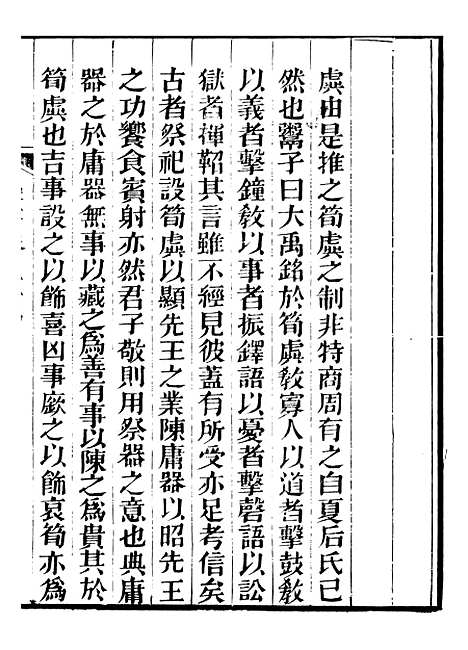 虡由是推之筍虡之制非特商周有之自夏后氏已
然也鬻子曰大禹銘於筍虡敎寡人以道者擊鼓敎
以義者擊鐘敎以事者振鐸語以憂者擊磬語以訟
獄者揮鞀其言雖不經見彼蓋有所受亦足考信矣
古者祭祀設筍虡以顯先王之業陳庸器以昭先王
之功饗食賓射亦然君子敬則用祭器之意也典庸
器之於庸器無事以藏之爲善有事以陳之爲貴其於
筍虡也吉事設之以飾喜凶事廞之以飾哀筍亦爲